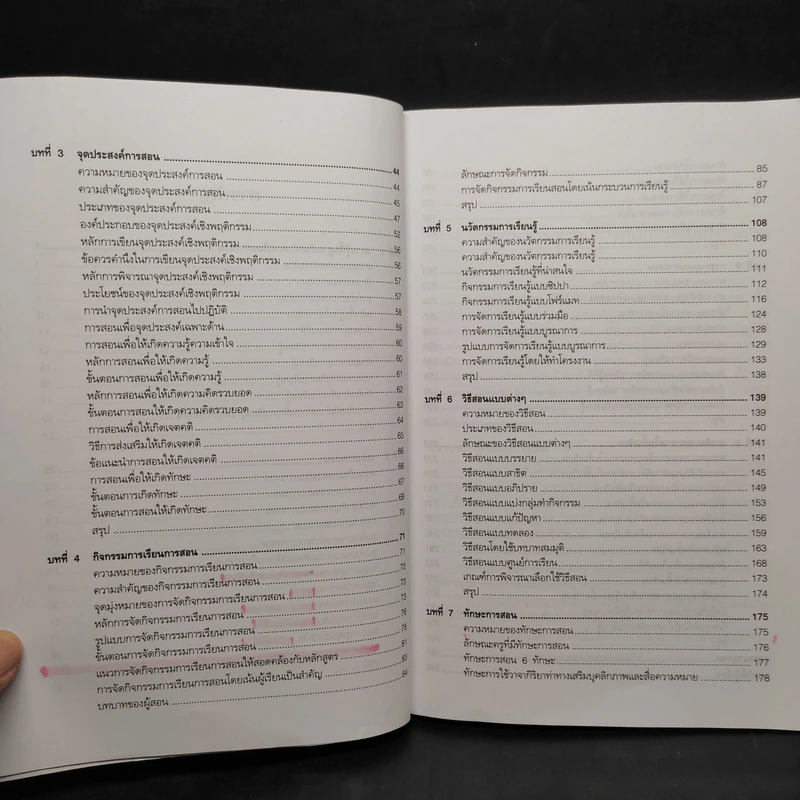 บทที่ 3 จุดประสงค์การสอน 44
ความหมายของจุดประสงค์การสอน 44
ความสำคัญของจุดประสงค์การสอน 45
ประเภทของจุดประสงค์การสอน 47
องค์ประกอบของจุดประสงค์เชิงพฤติกรรม 52
หลักการเขียนจุดประสงค์เชิงพฤติกรรม 56
ข้อควรคำนึงในการเขียนจุดประสงค์เชิงพฤติกรรม 56
หลักการพิจารณาจุดประสงค์เชิงพฤติกรรม 57
ประโยชน์ของจุดประสงค์เชิงพฤติกรรม 57
การนำจุดประสงค์การสอนไปปฏิบัติ 58
การสอนเพื่อจุดประสงค์เฉพาะด้าน 59
การสอนเพื่อให้เกิดความรู้ความเข้าใจ 60
หลักการสอนเพื่อให้เกิดความรู้ 60
ขั้นตอนการสอนเพื่อให้เกิดความรู้ 61
หลักการสอนเพื่อให้เกิดความคิดรวบยอด 62
ขั้นตอนการสอนให้เกิดความคิดรวบยอด 63
การสอนเพื่อให้เกิดเจตคติ 64
วิธีการส่งเสริมให้เกิดเจตคติ 65
ข้อแนะนำการสอนให้เกิดเจตคติ 66
การสอนเพื่อให้เกิดทักษะ 66
ขั้นตอนการเกิดทักษะ 67
ขั้นตอนการสอนให้เกิดทักษะ 68
สรุป 70
บทที่ 4 กิจกรรมการเรียนการสอน 71
ความหมายของกิจกรรมการเรียนการสอน 71
ความสำคัญของกิจกรรมการเรียนการสอน 72
จุดมุ่งหมายของการจัดกิจกรรมการเรียนการสอน 73
หลักการจัดกิจกรรมการเรียนการสอน 73
รูปแบบการจัดกิจกรรมการเรียนการสอน 76
ขั้นตอนการจัดกิจกรรมการเรียนการสอน 78
แนวการจัดกิจกรรมการเรียนการสอนให้สอดคล้องกับหลักสูตร 81
การจัดกิจกรรมการเรียนการสอนโดยเน้นผู้เรียนเป็นสำคัญ 83
บทบาทของผู้สอน 84
ลักษณะการจัดกิจกรรม 85
การจัดกิจกรรมการเรียนสอนโดยเน้นกระบวนการเรียนรู้ 87
สรุป 107
บทที่ 5 นวัตกรรมการเรียนรู้ 108
ความสำคัญของนวัตกรรมการเรียนรู้ 108
ความสำคัญของนวัตกรรมการเรียนรู้ 110
นวัตกรรมการเรียนรู้ที่น่าสนใจ 111
กิจกรรมการเรียนรู้แบบซิปปา 112
กิจกรรมการเรียนรู้แบบโฟร์แมท 116
การจัดการเรียนรู้แบบร่วมมือ 124
การจัดการเรียนรู้แบบบูรณาการ 128
รูปแบบการจัดการเรียนรู้แบบบูรณาการ 129
การจัดการเรียนรู้โดยให้ทำโครงงาน 133
สรุป 138
บทที่ 6 วิธีสอนแบบต่างๆ 139
ความหมายของวิธีสอน 139
ประเภทของวิธีสอน 140
ลักษณะของวิธีสอนแบบต่างๆ 141
วิธีสอนแบบบรรยาย 141
วิธีสอนแบบสาธิต 145
วิธีสอนแบบอภิปราย 149
วิธีสอนแบบแบ่งกลุ่มทำกิจกรรม 153
วิธีสอนแบบแก้ปัญหา 156
วิธีสอนแบบทดลอง 159
วิธีสอนโดยใช้บทบาทสมมุติ 163
วิธีสอนแบบศูนย์การเรียน 168
เกณฑ์การพิจารณาเลือกใช้วิธีสอน 173
สรุป 174
บทที่ 7 ทักษะการสอน 175
ความหมายของทักษะการสอน 175
ลักษณะครูที่มีทักษะการสอน 176
ทักษะการสอน 6 ทักษะ 177
ทักษะการใช้วาจากิริยาท่าทางเสริมบุคลิกภาพและสื่อความหมาย 178